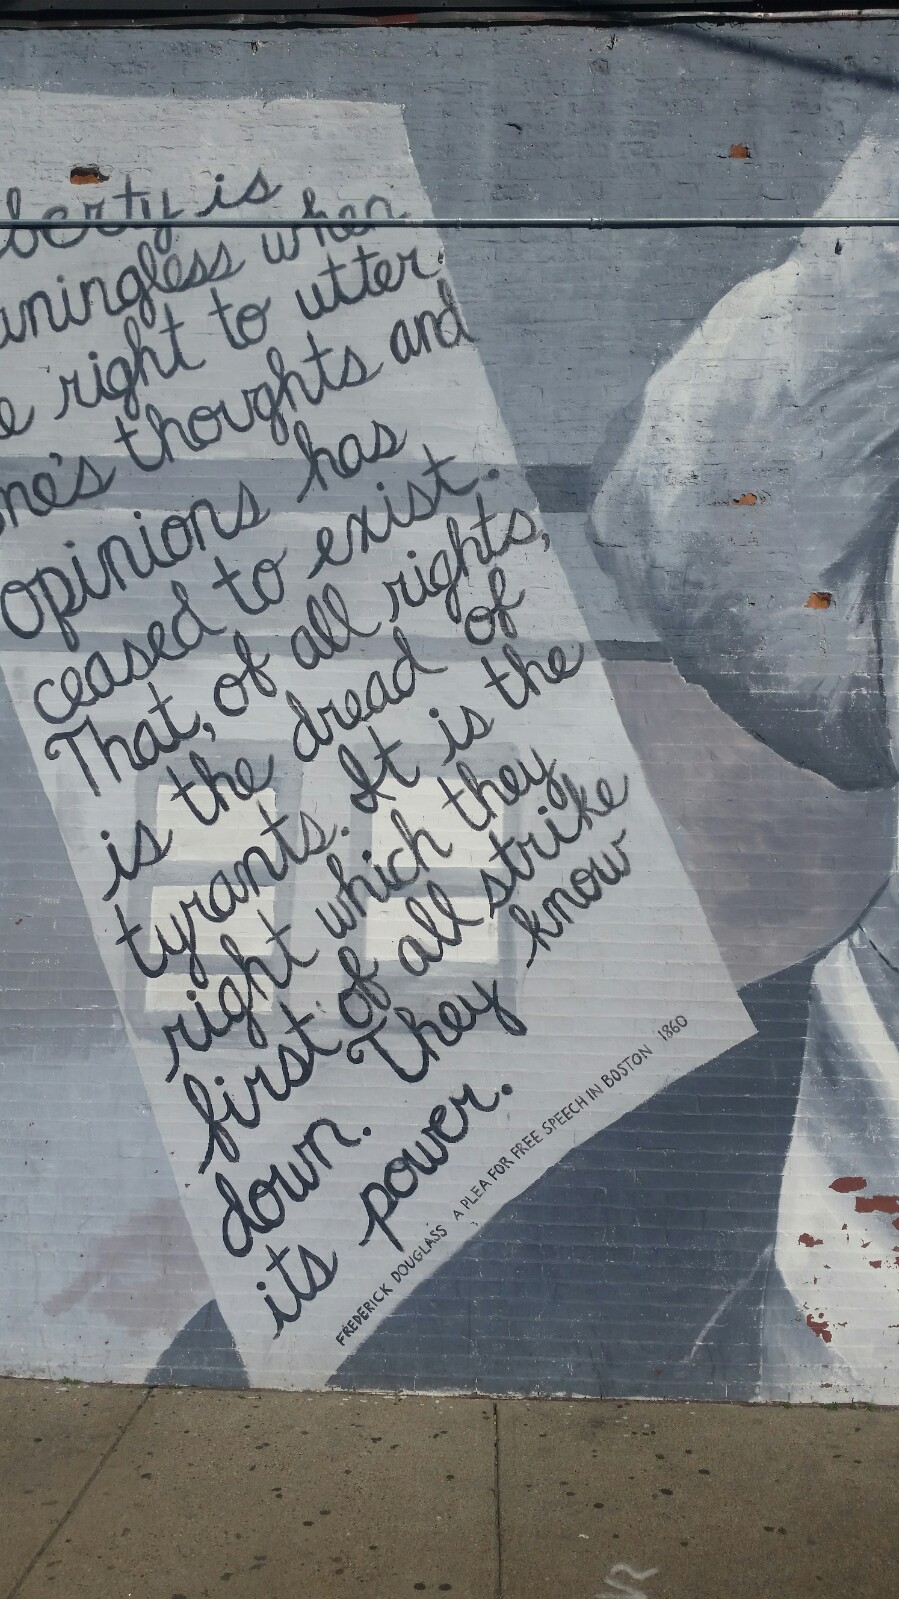 berty is
aningless when
e right to utter
ne's thoughts and
opinions has
ceased to exist.
That, of all rights,
is the dread of
tyrants. It is the
right which they
first of all strike
down. They know
its power.
FREDERICK DOUGLASS A PLEA FOR FREE SPEECH IN BOSTON 1860